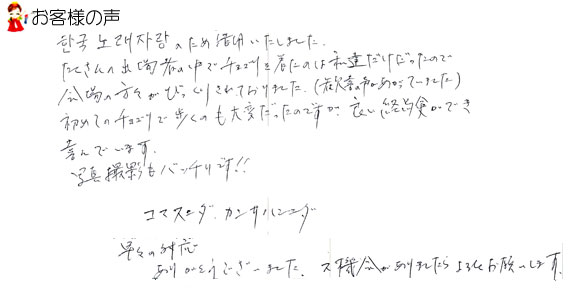 お客様の声
한국 노래자랑のため活用いたしました.
たくさんの出場者の中でチョゴリを着たのは私達だけだったので
会場の方々がびっくりされておりました.(歓喜の声があがっていました)
初めてのチョゴリで歩くのも大変だったのですが、良い経験ができ
喜んでいます.
写真撮影もバッチリです!!
コマスミダ. カンサハムニダ
早々の対応
ありがとうございました. 又機会がありましたらよろしくお願いします.